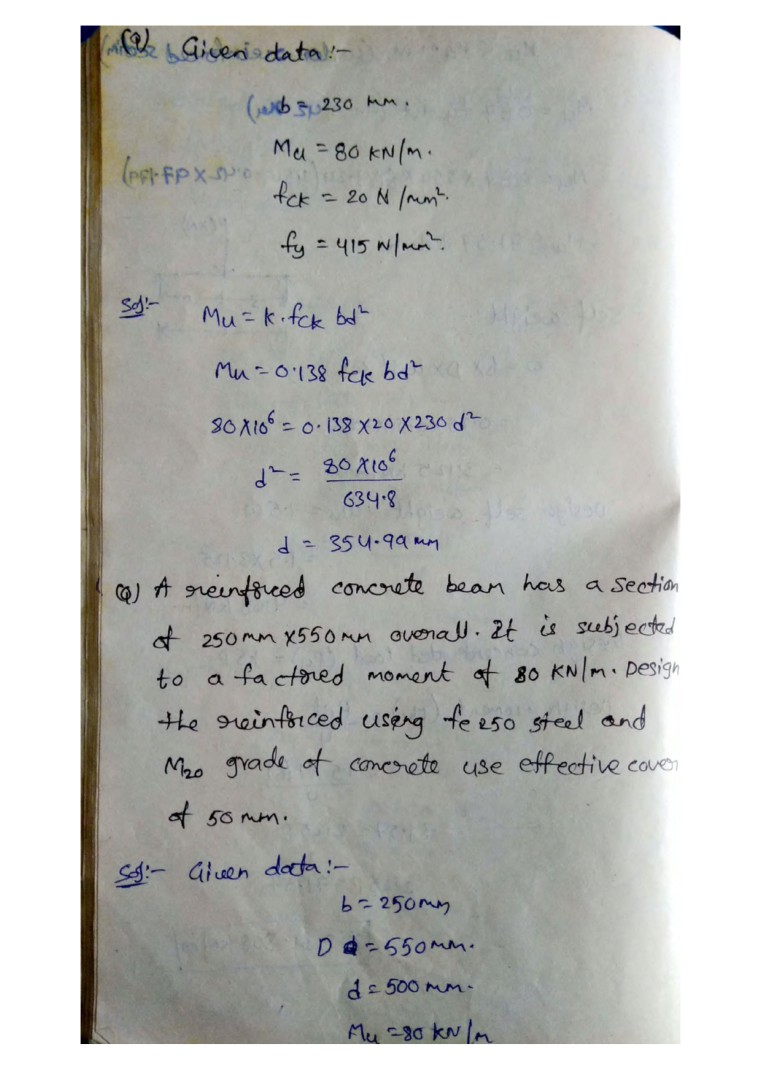 (Q) Given data:-
b = 230 mm.
Mu = 80 KN/m.
fck = 20 N/mm².
fy = 415 N/mm².
Sol:- Mu = k.fck bd²
Mu = 0.138 fck bd²
80X10⁶ = 0.138 X20 X230 d²
d² = 80 X10⁶ / 634.8
d = 354.99 mm
(Q) A reinforced concrete beam has a section
of 250mm X550mm overall. It is subjected
to a factored moment of 80 KN/m. Design
the reinforced using fe 250 steel and
M20 grade of concrete use effective cover
of 50 mm.
Sol:- Given data:-
b = 250mm
D = 550mm.
d = 500 mm.
Mu = 80 KN/m